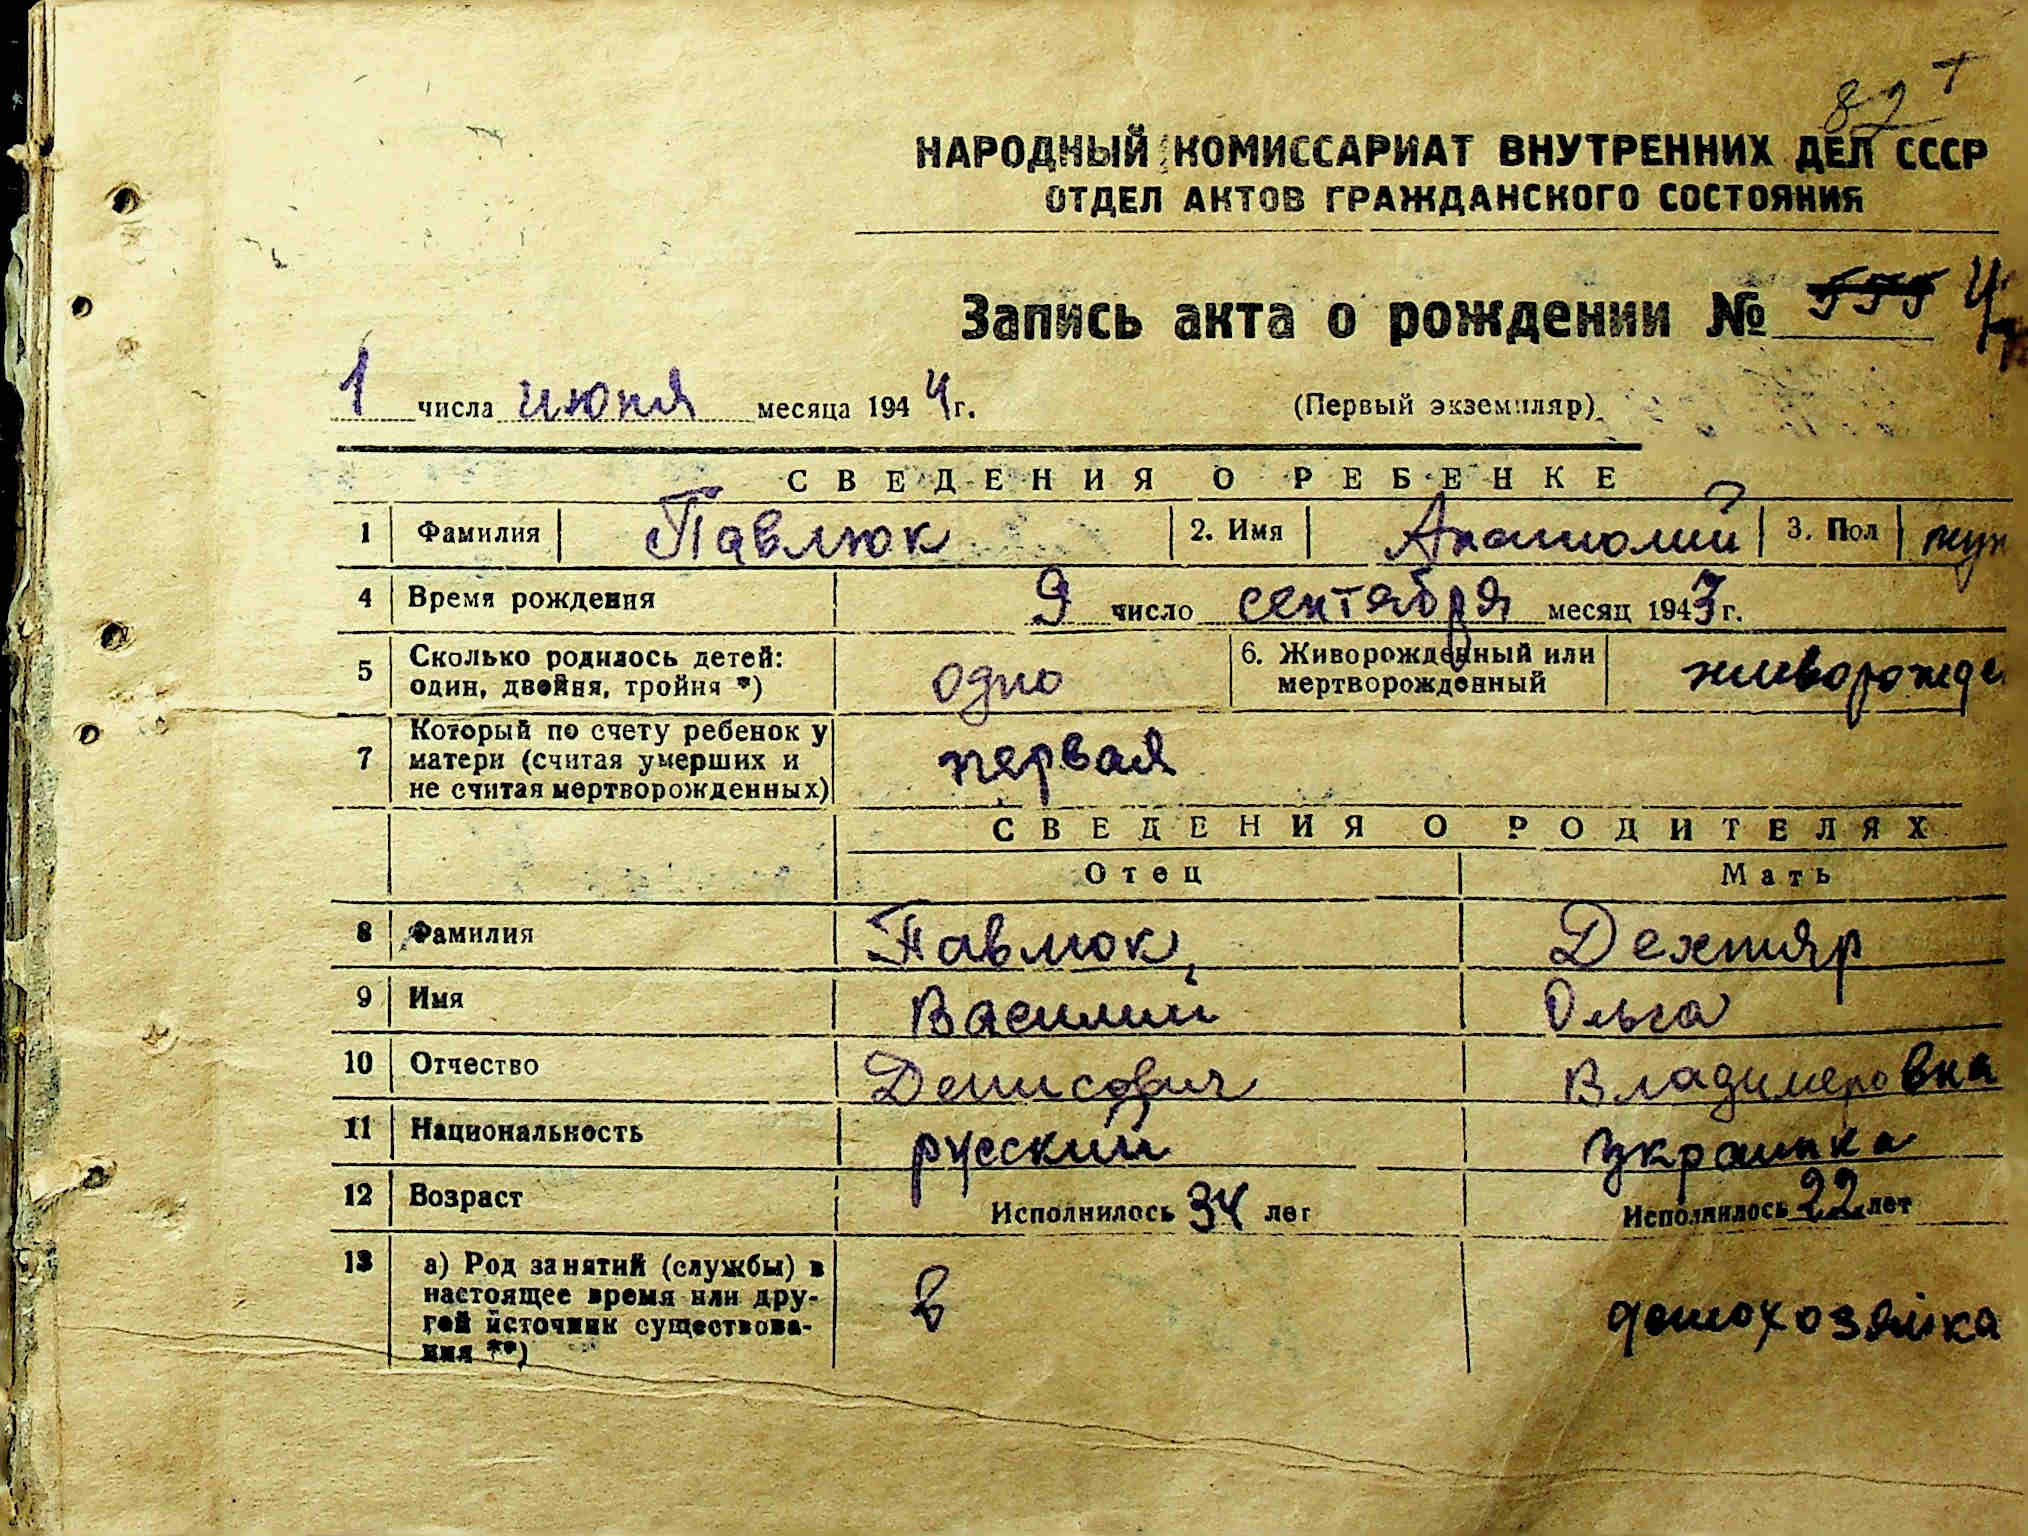 82 +
НАРОДНЫЙ КОМИССАРИАТ ВНУТРЕННИХ ДЕЛ СССР
ОТДЕЛ АКТОВ ГРАЖДАНСКОГО СОСТОЯНИЯ
Запись акта о рождении №
1 числа июня месяца 1944 г. (Первый экземпляр)
СВЕДЕНИЯ О РЕБЕНКЕ
1 Фамилия Павлюк 2. Имя Анатолий 3. Пол муж
4 Время рождения 9 число сентября месяц 1943 г.
5 Сколько родилось детей: один, двойня, тройня *) одно 6. Живорожденный или мертворожденный живорожде
7 Который по счету ребенок у матери (считая умерших и не считая мертворожденных) первая
СВЕДЕНИЯ О РОДИТЕЛЯХ
Отец Мать
8 Фамилия Павлюк, Дехтяр
9 Имя Василий Ольга
10 Отчество Денисович Владимеровна
11 Национальность русский украинка
12 Возраст Исполнилось 34 лет Исполнилось 22 лет
13 а) Род занятий (службы) в настоящее время или другой источник существования **) в домохозяйка